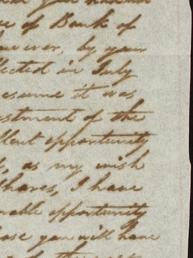 e of Bank of
however, by your
llected in July
esume it was
estment of the
llent opportunity
, as my wish
shares, I have
rable opportunity
ose you will have